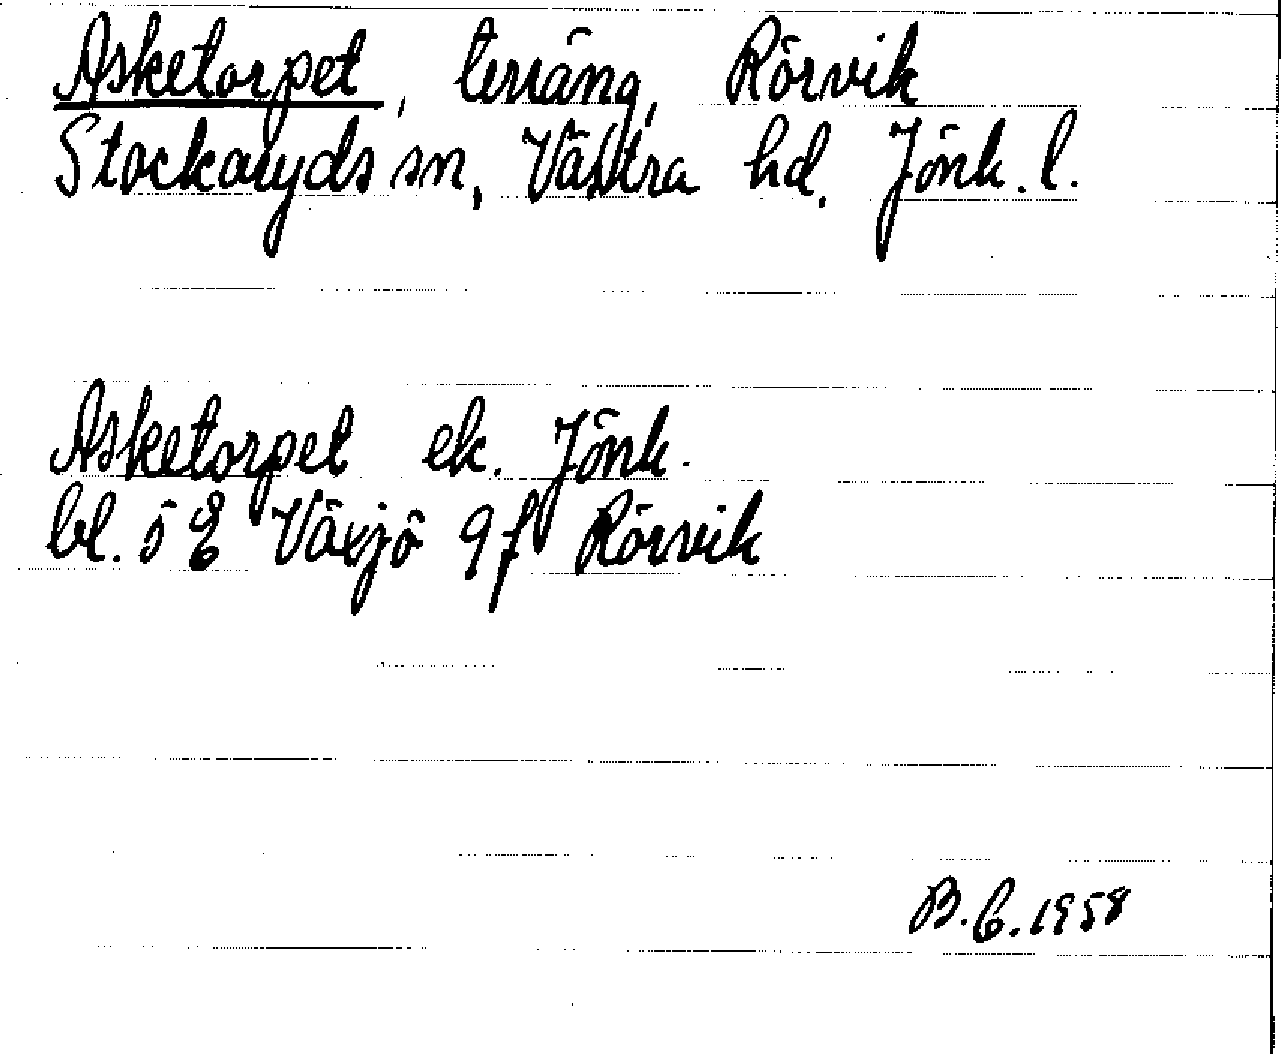 Asketorpet, terräng, Rörvik
Stockaryds sn, Västra hd, Jönk. l.
Asketorpet ek. Jönk.
bl. 5 E Växjö 9f Rörvik
B.C. 1958